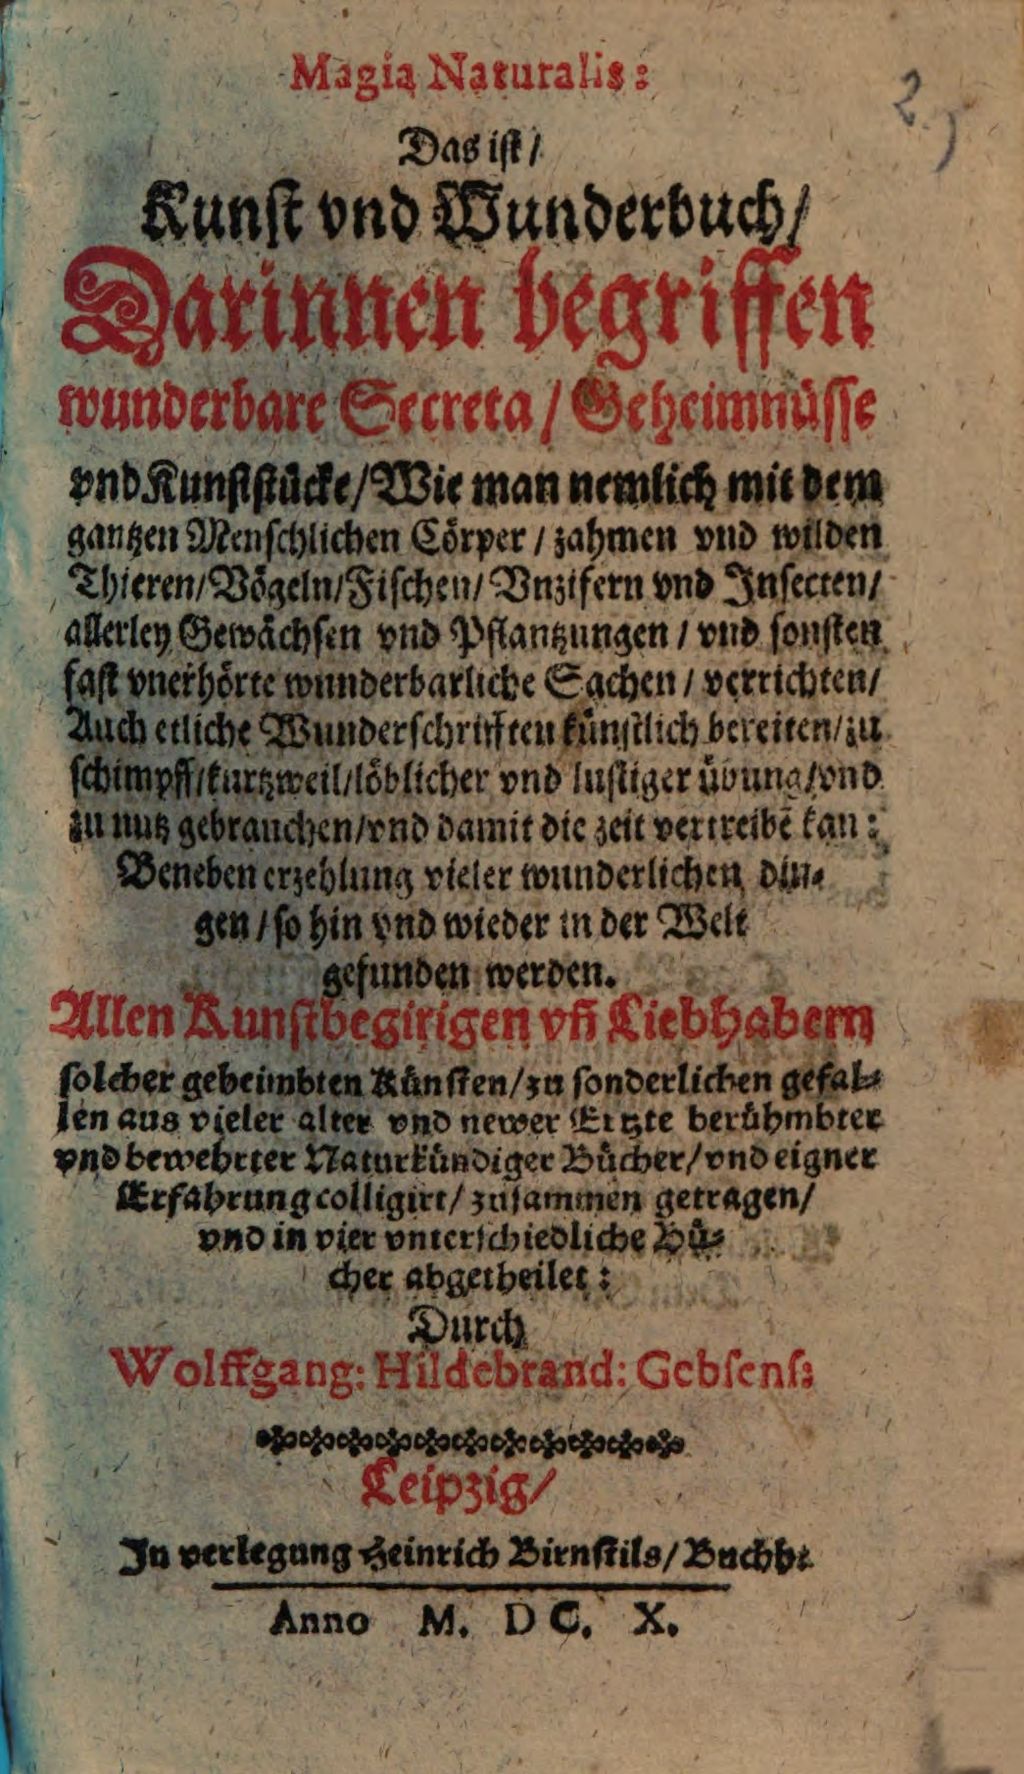 Magia Naturalis:
2.)
Das ist /
Kunst vnd Wunderbuch /
Darinnen begriffen
wunderbare Secreta / Geheimnüsse
vnd Kunststücke / Wie man nemlich mit dem
gantzen Menschlichen Cörper / zahmen vnd wilden
Thieren / Vögeln / Fischen / Vnzifern vnd Insecten /
allerley Gewächsen vnd Pflantzungen / vnd sonsten
fast vnerhörte wunderbarliche Sachen / verrichten /
Auch etliche Wunderschrifften künstlich bereiten / zu
schimpff / kurtzweil / löblicher vnd lustiger übung / vnd
zu nutz gebrauchen / vnd damit die zeit vertreibē kan:
Beneben erzehlung vieler wunderlichen din-
gen / so hin vnd wieder in der Welt
gefunden werden.
Allen Kunstbegirigen vñ Liebhabern
solcher geheimbten Künsten / zu sonderlichen gefal-
len aus vieler alter vnd newer Ertzte berühmbter
vnd bewehrter Naturkündiger Bücher / vnd eigner
Erfahrung colligirt / zusammen getragen /
vnd in vier vnterschiedliche Bü-
cher abgetheilet:
Durch
Wolffgang: Hildebrand: Gebsens:
Leipzig /
In verlegung Heinrich Birnstils / Buchh:
Anno M. DC. X.